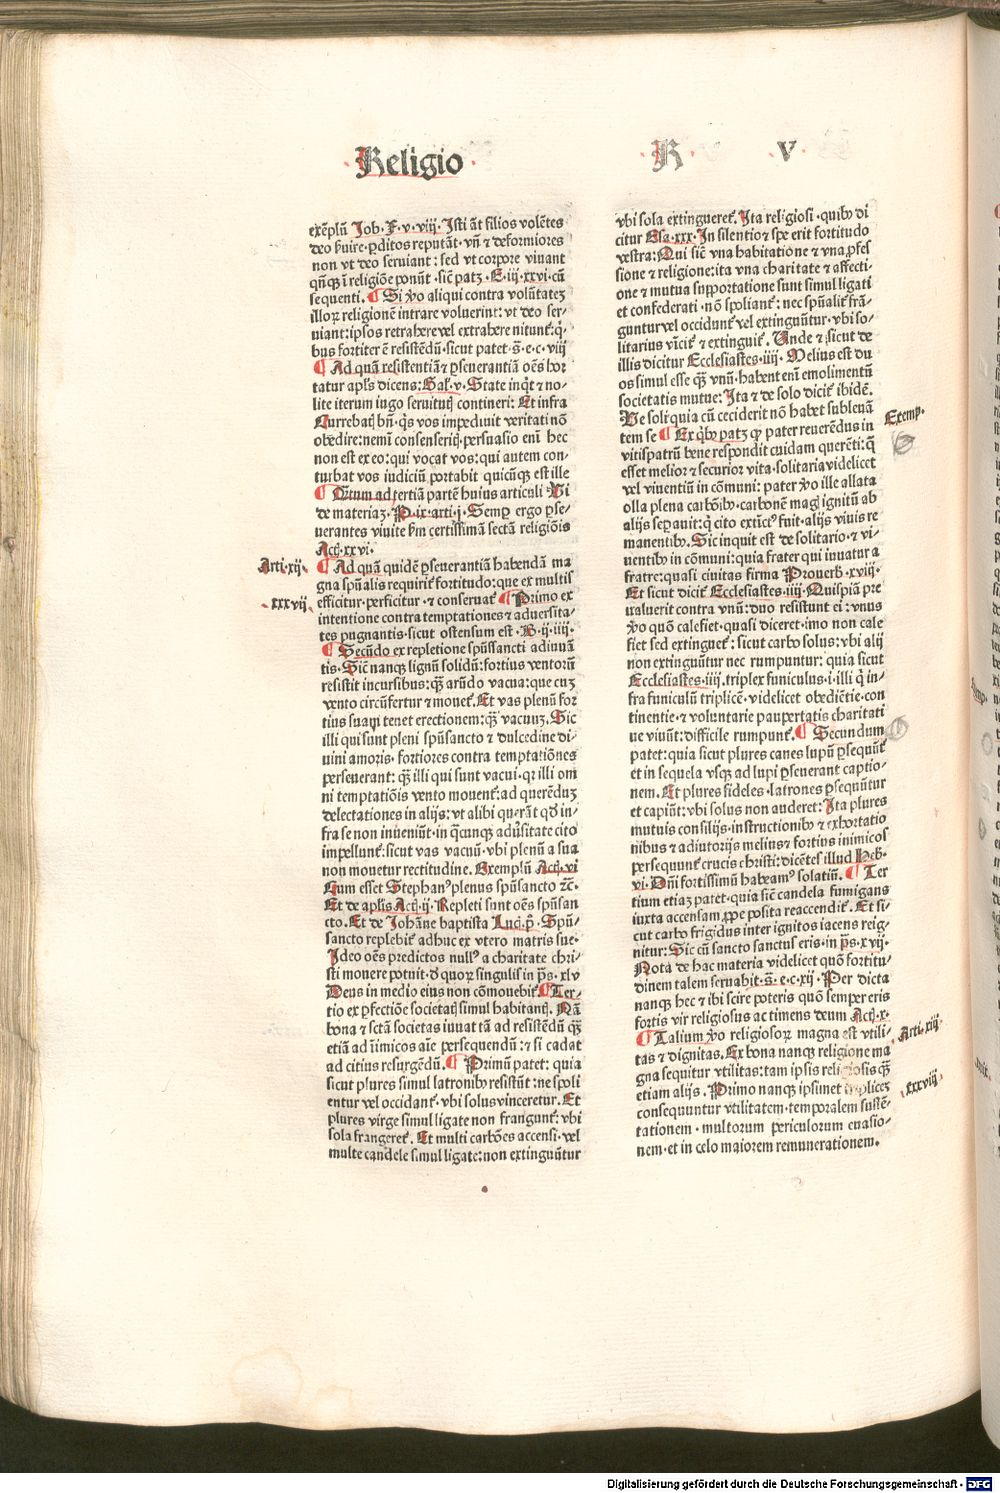 Religio
R V
exēplū Job·F·v·viij· Isti āt filios volētes
deo ẜuire·ꝑditos reputāt·vñ ⁊ deformiores
non vt deo seruiant: sed vt corpore viuant
qñꝗ ī religiōe ponūt·sic̄ patꝫ·E·iij·xxvi·cū
sequenti. ¶ Si ꝟo aliqui contra volūtateꝫ
illoꝝ religionē intrare voluerint: vt deo ser⸗
uiant: ipsos retrahere vel extrahere nitunt̄:q̇⸗
bus fortiter ē resistēdū·sicut patet·s̄·e·c·viij
¶ Ad quā resistentiā ⁊ ꝑseuerantiā oēs hor
tatur apl̄s dicens: Gal̄·v· State inqt̄ ⁊ no⸗
lite iterum iugo seruitutꝭ contineri: Et infra
Currebatꝭ bn̄·q̇s vos impediuit veritati nō
obedire: nemī consenseritꝭ·persuasio enī hec
non est ex eo: qui vocat vos: qui autem con⸗
turbat vos iudiciū portabit quicūꝗ est ille
¶ Q̄tum ad tertiā partē huius articuli Vi
de materiaꝫ·P·ix·arti·j· Semꝑ ergo ꝑse⸗
uerantes viuite ẜm certissimā sectā religiōis
Actꝭ·xxvi·
Arti·xij·
¶ Ad quā quidē ꝑseuerantiā habendā ma
gna spūalis requirit̄ fortitudo: que ex multis
·xxxvij·
efficitur·perficitur·⁊ conseruat̄ ¶ Primo ex
intentione contra temptationes ⁊ aduersita⸗
tes pugnantis·sicut ostensum est·B·ij·iiij·
¶ Secūdo ex repletione spūssancti adiuuā
tis·Sic nanꝗ lignū solidū: fortius ventorū
resistit incursibus: qꝫ arūdo vacua: que cuꝫ
vento circūfertur ⁊ mouet̄. Et vas plenū for
tius suaui tenet erectionem: qꝫ vacuuꝫ. Sic
illi qui sunt pleni spūsancto ⁊ dulcedine di⸗
uini amoris·fortiores contra temptatiōnes
perseuerant: qꝫ illi qui sunt vacui·qꝛ illi om
ni temptatiōis vento mouent̄: ad querēduꝫ
delectationes in alijs: vt alibi querāt qd̄ in⸗
fra se non inueniūt·in q̄cunꝗ aduersitate cito
impellunt̄: sicut vas vacuū·vbi plenū a sua
non mouetur rectitudine. Exemplū Actꝭ·vi
Cum esset Stephanꝰ plenus spūsancto ⁊c̄·
Et de apl̄is Actꝭ·ij· Repleti sunt oēs spūsan
cto. Et de Johāne baptista Luc̄·p̄· Spū⸗
sancto replebit̄ adhuc ex vtero matris sue·
Ideo oēs predictos nullꝰ a charitate chri⸗
sti mouere potuit·d̄ quoꝝ singulis in ps̄·xlv
Deus in medio eius non cōmouebit̄ ¶ Ter⸗
tio ex ꝑfectiōe societatꝭ simul habitantꝭ. Nā
bona ⁊ sctā societas iuuat tā ad resistēdū qꝫ
etiā ad īimicos aīe persequendū: ⁊ si cadat
ad citius resurgēdū. ¶ Primū patet: quia
sicut plures simul latronibꝰ resistūt: ne spoli
entur vel occidant̄·vbi solus vinceretur. Et
plures virge simul ligate non frangunt̄: vbi
sola frangeret̄. Et multi carbōes accensi·vel
multe candele simul ligate: non extinguūtur
vbi sola extingueret̄. Ita religiosi·quibꝰ di
citur Esa·xxx· In silentio ⁊ spe erit fortitudo
vestra: Qui sic̄ vna habitatione ⁊ vna ꝓfes
sione ⁊ religione: ita vna charitate ⁊ affecti⸗
one ⁊ mutua supportatione sunt simul ligati
et confederati·nō spoliant̄: nec spūalit̄ frā⸗
guntur vel occidunt̄ vel extinguūtur·vbi so⸗
litarius vīcit̄ ⁊ extinguit̄. Unde ⁊ sicut de
illis dicitur Ecclesiastes·iiij· Melius est du
os simul esse qꝫ vnū·habent enī emolimentū
societatis mutue: Ita ⁊ de solo dicit̄ ibidē.
Ve soli: quia cū ceciderit nō habet subleuā
Exemp.
tem se ¶ Ex q̇bꝰ patꝫ ꝙ pater reuerēdus in
vitispatrū bene respondit cuidam querēti: q̄
esset melior ⁊ securior vita·solitaria videlicet
vel viuentiū in cōmuni: pater ꝟo ille allata
olla plena carbōibꝰ·carbonē magꝭ ignitū ab
alijs seꝑauit: q̇ cito extīctꝰ fuit·alijs viuis re
manentibꝰ. Sic inquit est de solitario·⁊ vi⸗
uentibꝰ in cōmuni: quia frater qui iuuatur a
fratre: quasi ciuitas firma Prouerb·xviij·
Et sicut dicit̄ Ecclesiastes·iiij· Quispiā pre
ualuerit contra vnū: duo resistunt ei: vnus
ꝟo quō calefiet·quasi diceret·imo non cale
fiet sed extinguet̄: sicut carbo solus: vbi alij
non extinguūtur nec rumpuntur: quia sicut
Ecclesiastes·iiij. triplex funiculus·i·illi q̇ in⸗
fra funiculū triplicē·videlicet obediētie·con
tinentie·⁊ voluntarie paupertatis charitati
ue viuūt: difficile rumpunt̄. ¶ Secundum
patet: quia sicut plures canes lupū ꝑsequūt̄
et in sequela vsꝗ ad lupi ꝑseuerant captio⸗
nem. Et plures fideles·latrones ꝑsequūtur
et capiūt: vbi solus non auderet: Ita plures
mutuis consilijs·instructionibꝰ ⁊ exhortatio
nibus ⁊ adiutorijs melius ⁊ fortius inimicos
persequunt̄ crucis christi: dicētes illud Heb̄·
vi· Dn̄i fortissimū habeamꝰ solatiū. ¶ Ter
tium etiaꝫ patet·quia sic̄ candela fumigans
iuxta accensam ꝓpe posita reaccendit̄. Et si⸗
cut carbo frigidus inter ignitos iacens reig⸗
nitur: Sic cū sancto sanctus eris·in ps̄·xvij·
Nota de hac materia videlicet quō fortitu⸗
dinem talem seruabit·s̄·e·c·xij· Per dicta
nanꝗ hec ⁊ ibi scire poteris quō semper eris
fortis vir religiosus ac timens deum Actꝭ·x·
Arti·xiij·
¶ Talium ꝟo religiosoꝝ magna est vtili⸗
tas ⁊ dignitas. Ex bona nanꝗ religione ma
gna sequitur vtilitas: tam ipsis religiosis qꝫ
xxxviij·
etiam alijs. Primo nanꝗ ipsimet triplicē
consequuntur vtilitatem·temporalem sustē⸗
tationem·multorum periculorum euasio⸗
nem·et in celo maiorem remunerationem.
Digitalisierung gefördert durch die Deutsche Forschungsgemeinschaft - DFG